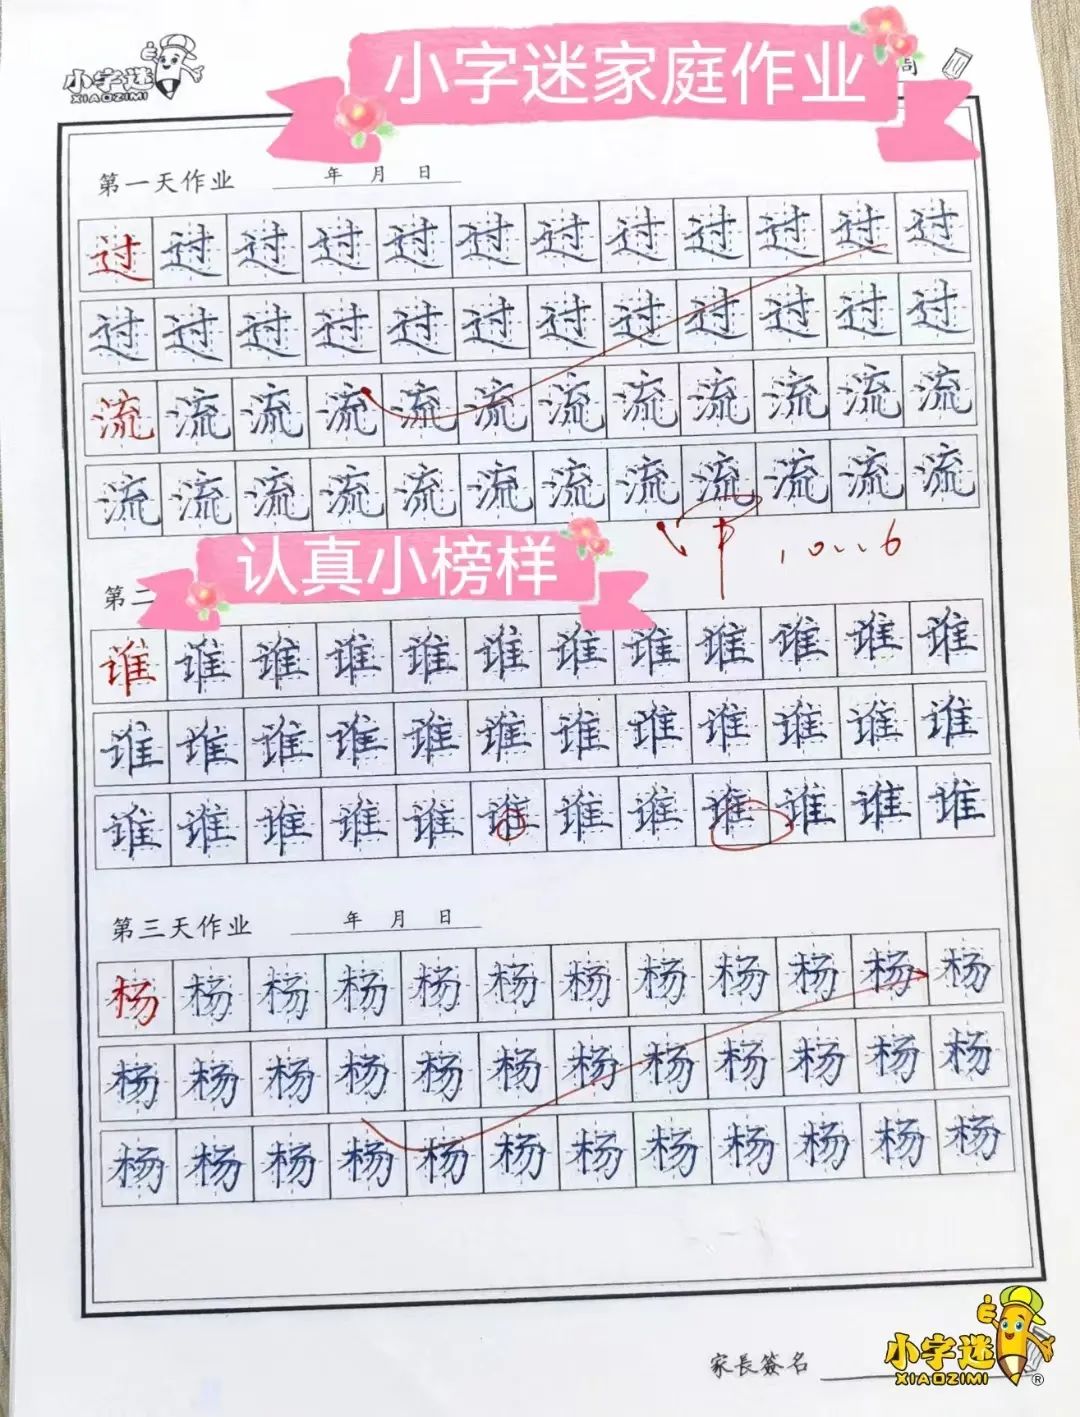 小字迷
XIAOZIMI
小字迷家庭作业
周
第一天作业 年 月 日
过过过过过过过过过过过过
过过过过过过过过过过过过
流流流流流流流流流流流流
流流流流流流流流流流流流
10.6
认真小榜样
第二
谁谁谁谁谁谁谁谁谁谁谁谁
谁谁谁谁谁谁谁谁谁谁谁谁
谁谁谁谁谁谁谁谁谁谁谁谁
第三天作业 年 月 日
杨杨杨杨杨杨杨杨杨杨杨杨
杨杨杨杨杨杨杨杨杨杨杨杨
杨杨杨杨杨杨杨杨杨杨杨杨
家長簽名
小字迷
XIAOZIMI®